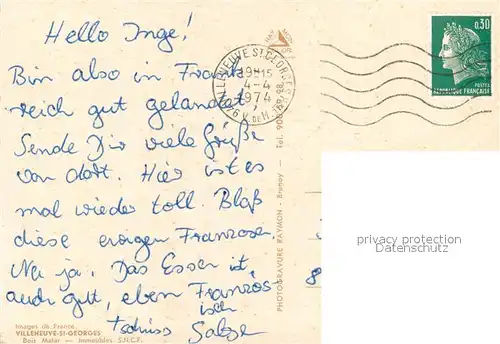 Hello Inge!
Bin also in Frank
reich gut gelandet
Sende Dir viele Grüße
von dort. Hier ist es
mal wieder toll. Bloß
diese ewigen Franzosen
Na ja. Das Essen ist
auch gut, eben Französ
isch
Tschüss
Images de France
VILLENEUVE-ST-GEORGES
Bois Matar — Immeubles S.N.C.F.
VILLENEUVE ST GEORGES
19H15
4-4
1974
94 V. DE M.
PHOTOGRAVURE RAYMON — Brunoy — Tél. 900
0,30
POSTES
REPUBLIQUE FRANÇAISE
privacy protection
Datenschutz
8